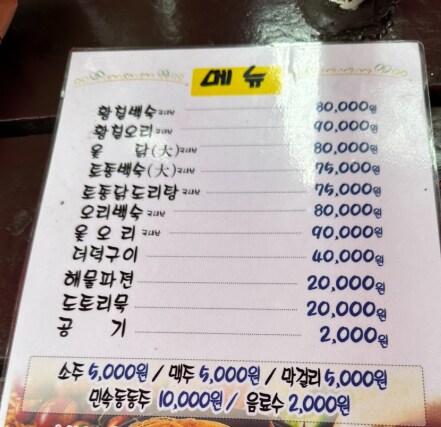 메뉴
황칠백숙 국내산 80,000원
황칠오리 국내산 90,000원
옻 닭(大) 국내산 80,000원
토종백숙(大) 국내산 75,000원
토종닭도리탕 국내산 75,000원
오리백숙 국내산 80,000원
옻 오 리 국내산 90,000원
더덕구이 40,000원
해물파전 20,000원
도토리묵 20,000원
공 기 2,000원
소주 5,000원 / 맥주 5,000원 / 막걸리 5,000원
민속동동주 10,000원 / 음료수 2,000원